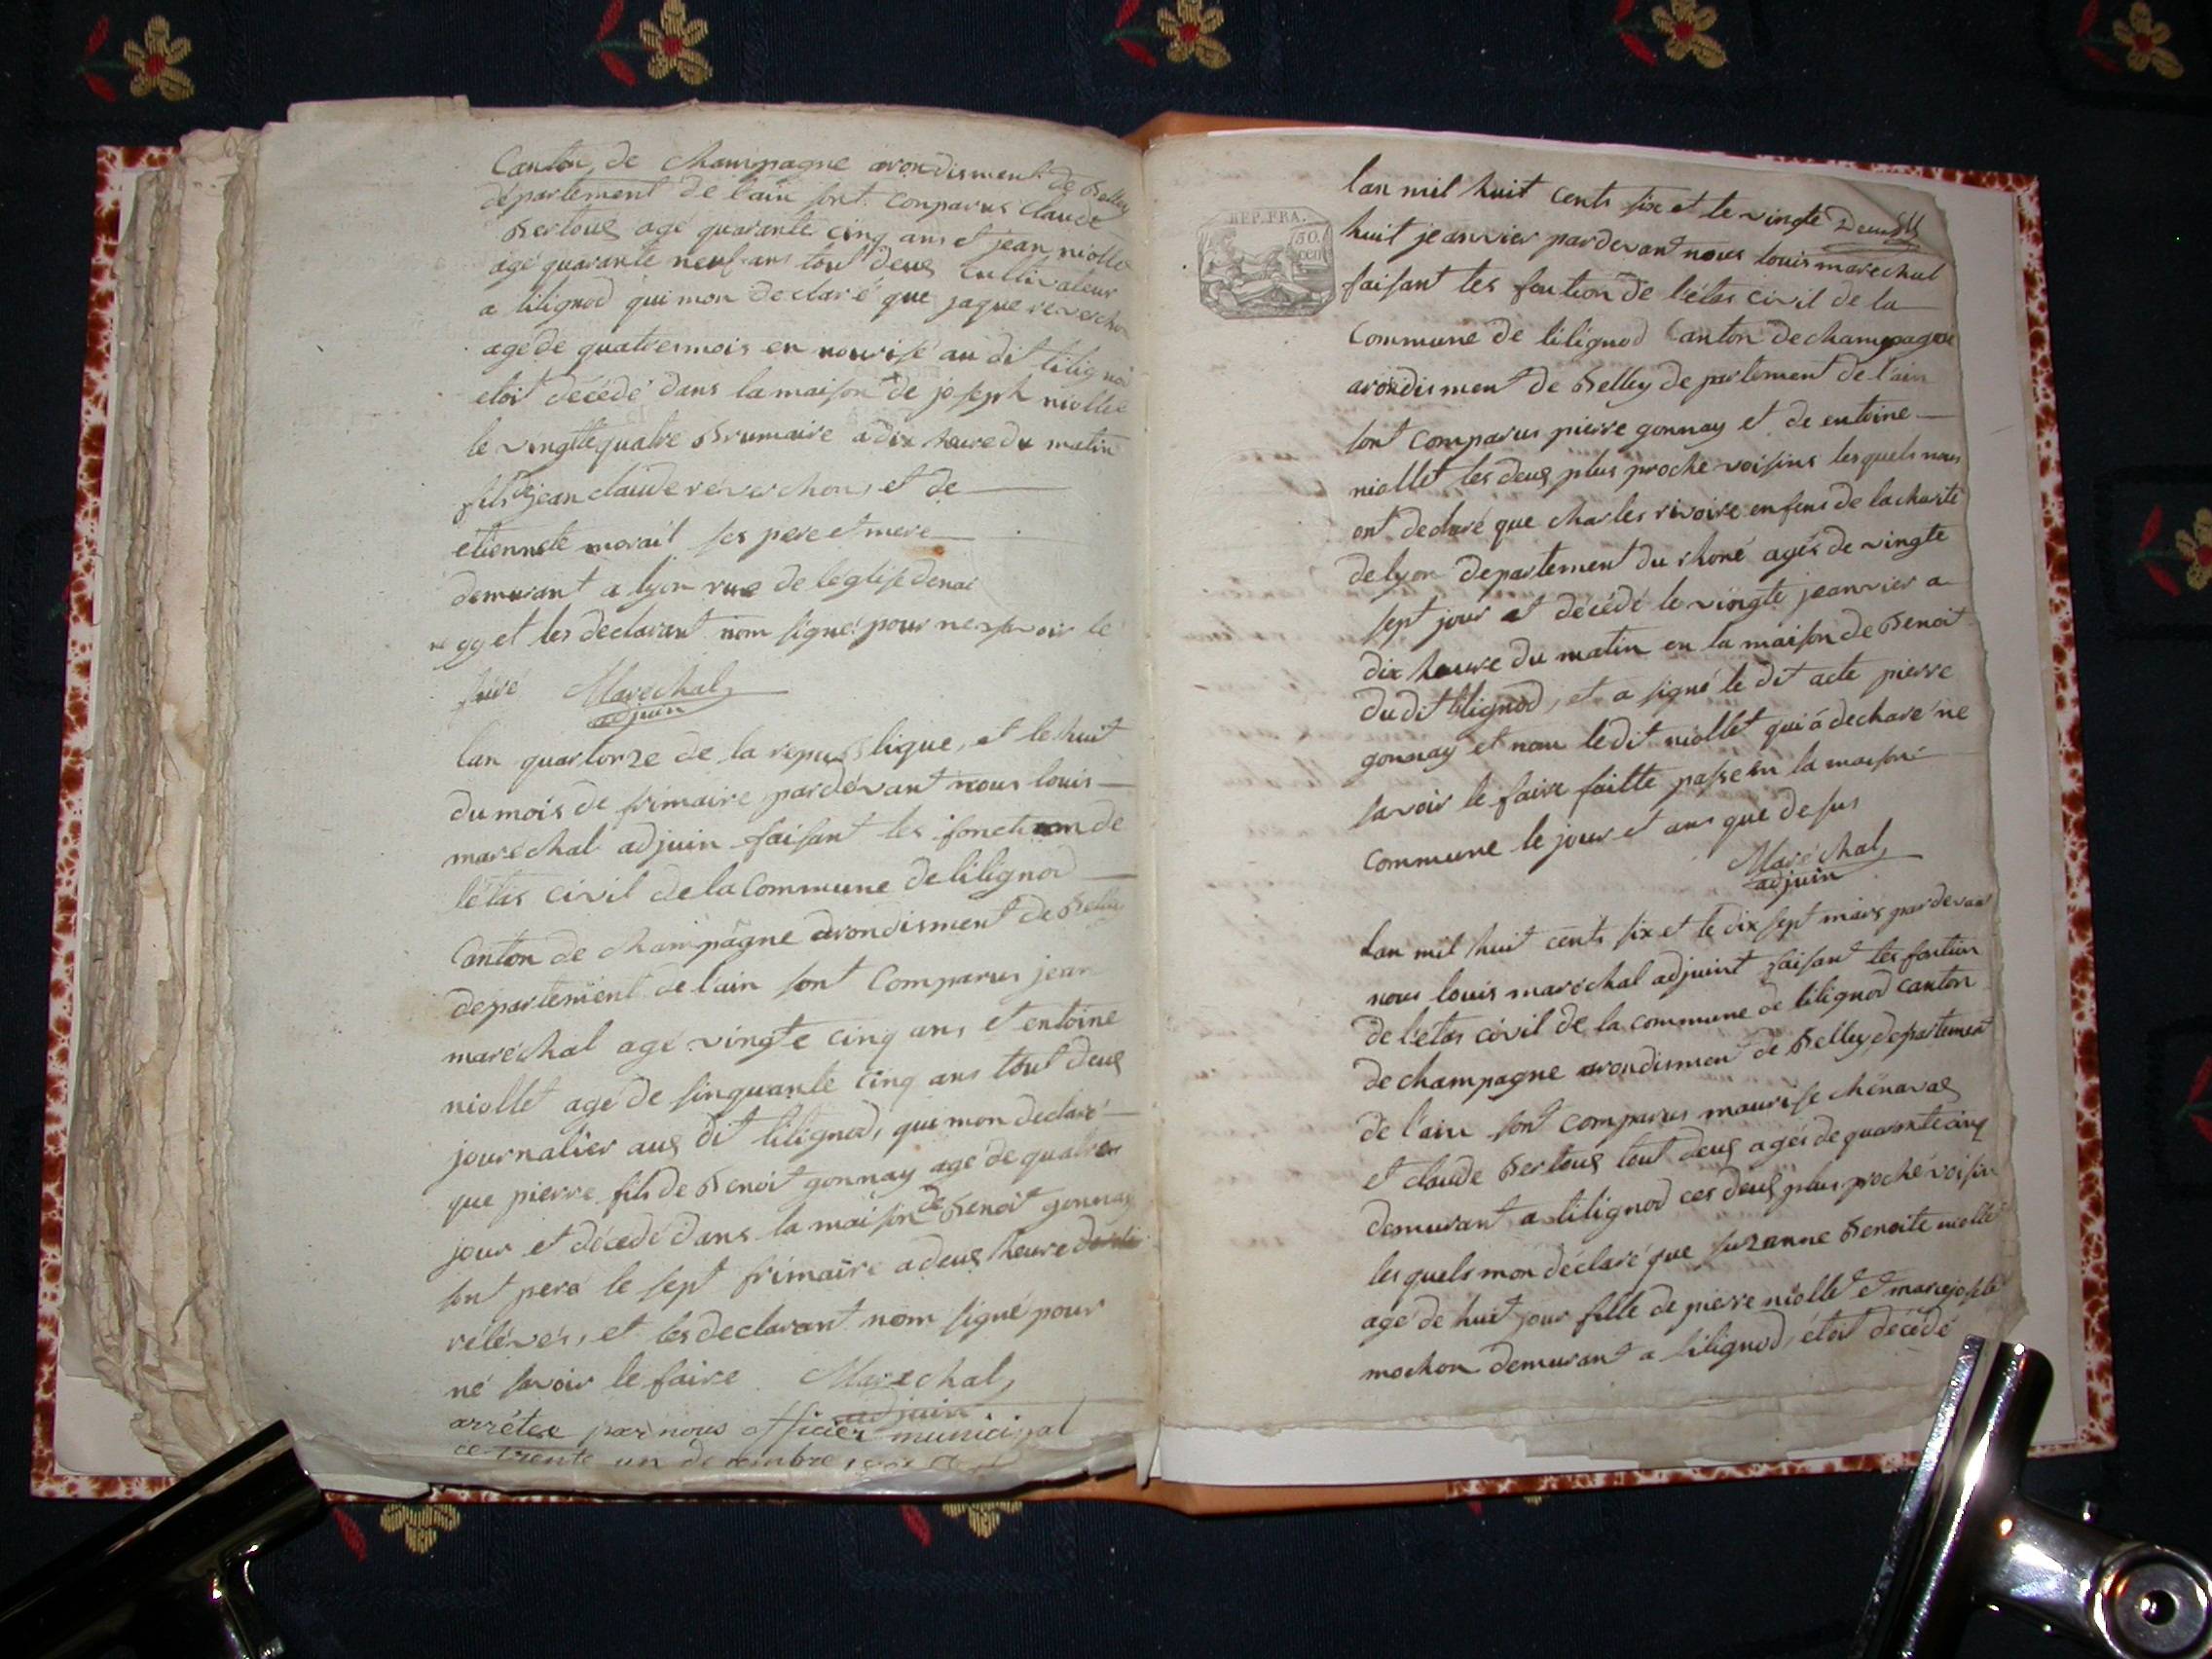 Canton de champagne arondisment de Belley
département de l'ain sont comparus claude
Bertous agé quarante cinq ans et jean niollet
agé quarante neuf ans tout deus cultivateur
a lilignod qui mon declaré que jaque reverchon
agé de quatres mois en nourise au dit lilignod
etoit décédé dans la maison de joseph niollet
le vingtte quatre Brumaire a dix heure du matin
fils de jean claude reverchon, et de
etiennete morail ses pere et mere
demurant a lyon rue de leglise denai
et les declarant nom signé pour ne savoir le
faire Marechal
adjuin
lan quartorze de la republique, et le huit
du mois de frimaire pardévant nous louis
maréchal adjuin faisant les fonction de
létas civil de la Commune de lilignod
Canton de champagne arondisment de Belley
departement de lain sont Comparus jean
maréchal agé vingte cinq ans et entoine
niollet agé de sinquante cinq ans tout deus
journalier aus dit lilignod, qui mon declaré
que pierre fils de Benoit gonnay agé de quatre
jour et décédé dans la maison de Benoit gonnay
sont peré le sept frimaire a deus heure
rélévés, et les declarant nom signé pour
né savoir le faire Marechal,
adjuin
arrétée par nous officier municipal
ce trente un decembre
REP. FRA.
50.
lan mil huit cents six et le vingte
huit jeanvier pardevant nous louis marechal
faisant les fontion de l'étas civil de la
Commune de lilignod Canton de champagne
arondisment de Belley departement de l'ain
sont comparus pierre gonnay et de entoine
niollet les deus plus proche voisins lesquels nous
ont declaré que charles rivoire enfens de la charité
de lyon departement du rhoné agés de vingte
sept jour et décédé le vingte jeanvier a
dix heure du matin en la maison de Benoit
du dit lilignod, et a signé le dit acte pierre
gonnay et non le dit niollet qui á declaré ne
savoir le faire faitte passe en la maison
commune le jour et ans que desus
Maréchal,
adjuin
Lan mil huit cents six et le dix sept mars pardevant
nous louis maréchal adjuint faisant les fontion
de l'etas civil de la commune de lilignod canton
de champagne arondisment de Belley departement
de l'ain sont comparus maurise chénavas
et claude Bertous tout deus agés de quarante cinq
demurant a lilignod ces deus plus proché voisin
lesquels mon déclaré que suzanne Benoite niollet
agé de huit jour fille de pierre niollet et marie josete
mochon demurant a lilignod, étoit décédé